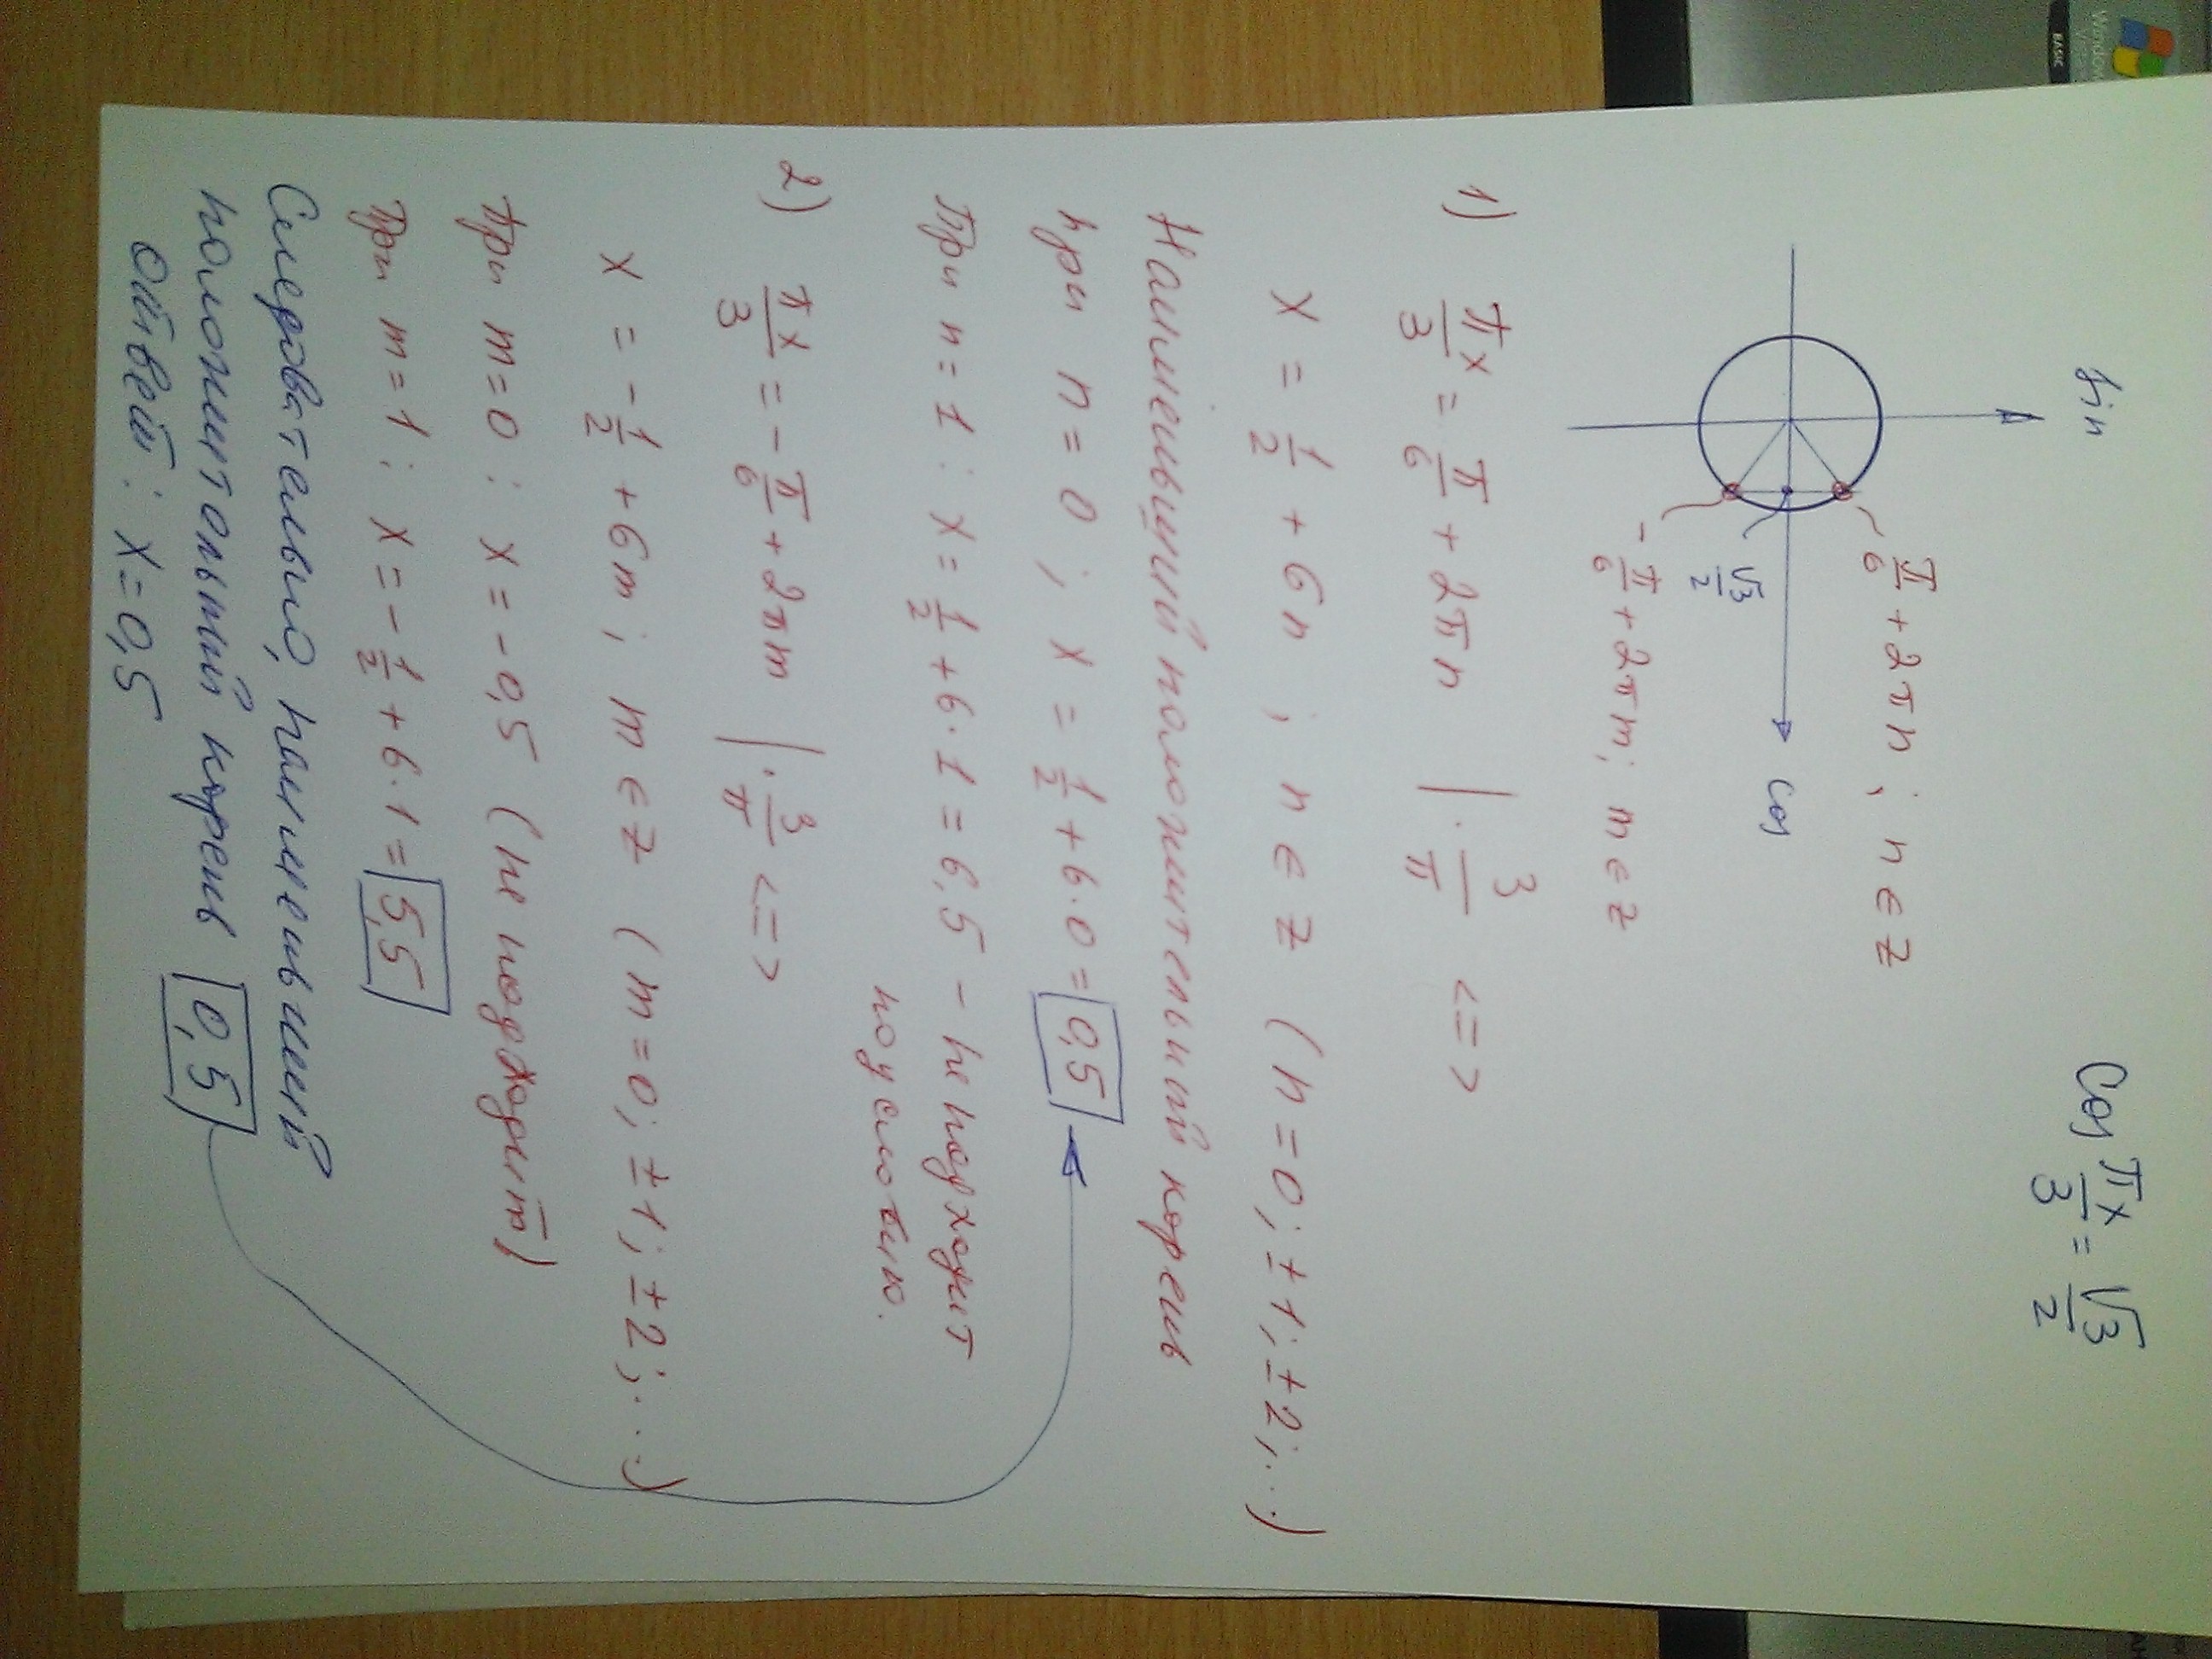 cos πx/3 = √3/2
sin
π/6 + 2πn; n ∈ Z
cos
√3/2
-π/6 + 2πm; m ∈ Z
1) πx/3 = π/6 + 2πn | · 3/π <=>
x = 1/2 + 6n ; n ∈ Z (n=0; ±1; ±2; ...)
Наименьший положительный корень
при n=0; x = 1/2 + 6·0 = 0,5
При n=1: x = 1/2 + 6·1 = 6,5 - не подходит
по условию.
2) πx/3 = -π/6 + 2πm | · 3/π <=>
x = -1/2 + 6m; m ∈ Z (m=0; ±1; ±2; ...)
при m=0: x = -0,5 (не подходит)
При m=1: x = -1/2 + 6·1 = 5,5
Следовательно, наименьший
положительный корень 0,5
Ответ: x=0,5
Windows
BASIC